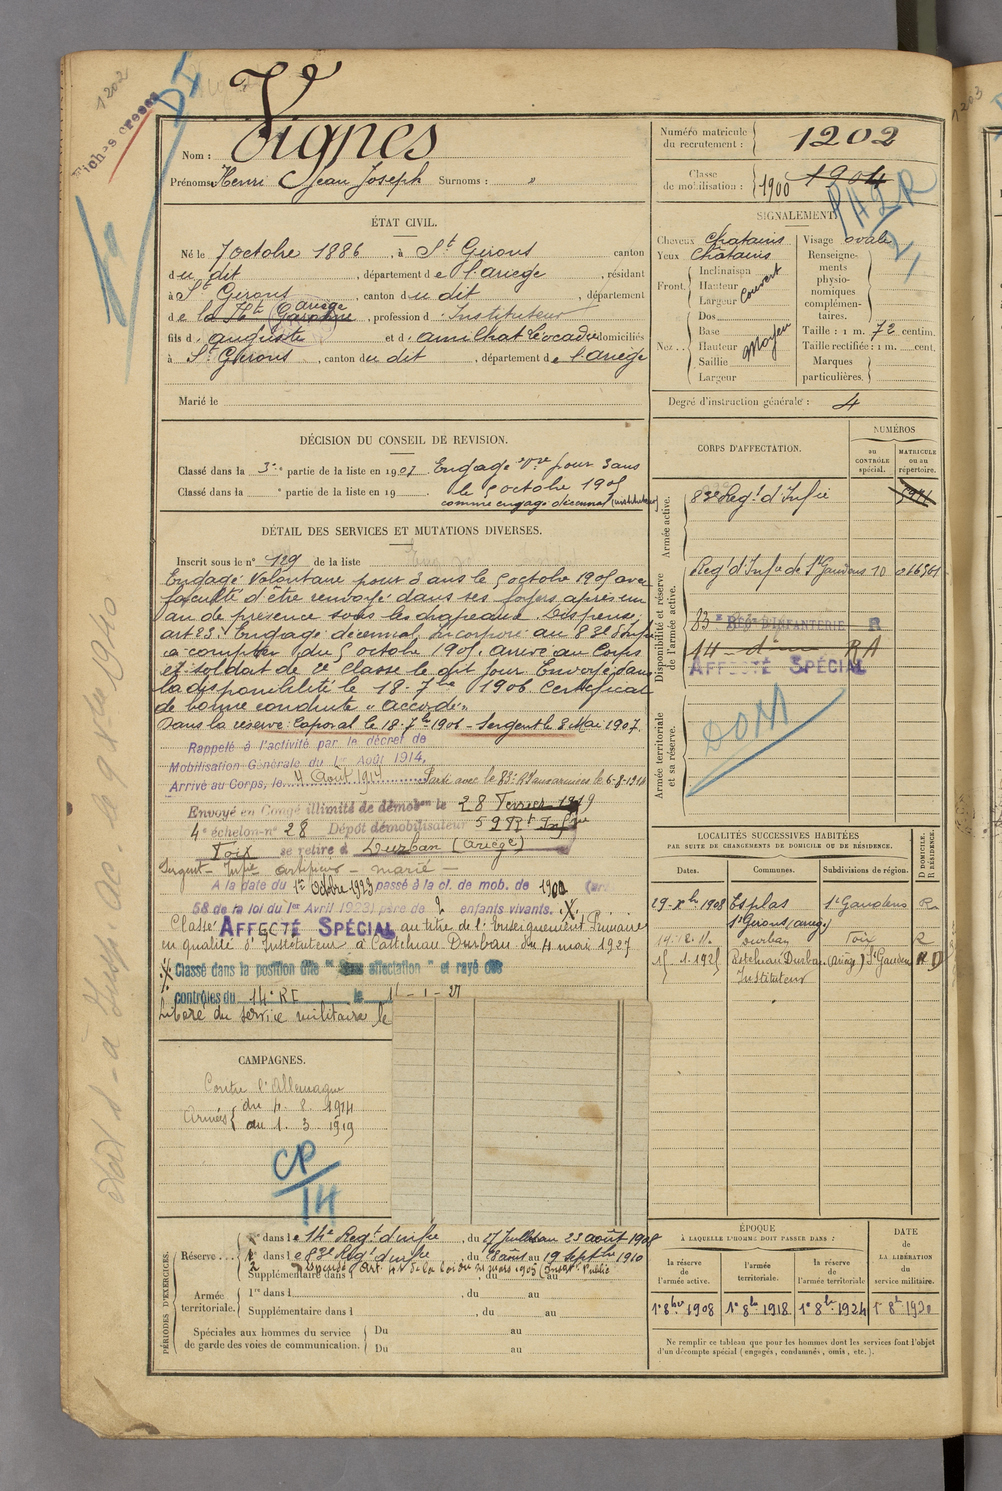 1202
Fiches creees
DI
Vignes
Nom :
Prénoms : Henri Jean Joseph Surnoms : "
Numéro matricule du recrutement : 1202
Classe de mobilisation : 1900 1904
ÉTAT CIVIL.
Né le 7 octobre 1886, à St Girons canton
du dit, département de l'ariège, résidant
à St Girons, canton du dit, département
de la Hte Garonne ariège, profession d'Instituteur
fils d'auguste et d'amilhat Léocadie domiciliés
à St Girons, canton du dit, département de l'ariège
Marié le
SIGNALEMENT.
Cheveux chatains
Yeux chatains
Front. Inclinaison
Hauteur
Largeur
couvert
Nez . . Dos
Base
Hauteur
Saillie
Largeur
Moyen
Visage ovale
Renseignements physionomiques complémentaires.
Taille : 1 m. 72 centim.
Taille rectifiée : 1 m. cent.
Marques particulières.
Degré d'instruction générale : 4
DÉCISION DU CONSEIL DE REVISION.
Classé dans la 3e partie de la liste en 1907 Engagé vre pour 3 ans
Classé dans la e partie de la liste en 19 . le 5 octobre 1905
comme engagé décennal (instituteur)
DÉTAIL DES SERVICES ET MUTATIONS DIVERSES.
Inscrit sous le n° 129 de la liste
Engagé Volontaire pour 3 ans le 5 octobre 1905 avec
faculté d'être renvoyé dans ses foyers après un
an de présence sous les drapeaux. Dispensé
art 23. Engagé décennal, Incorporé au 83e d'Infie
à compter du 5 octobre 1905, arrivé au Corps
et soldat de 2e classe le dit jour. Envoyé dans
la disponibilité le 18 7bre 1906 Certificat
de bonne conduite "accordé"
Dans la réserve : Caporal le 18-7bre 1906 - Sergent le 8 Mai 1907.
Rappelé à l'activité par le décret de
Mobilisation Générale du 1er Août 1914,
Arrivé au Corps, le 4 Août 1914 Parti avec le 83e RI aux armées le 6-8-1914
Envoyé en Congé illimité de démobon le 28 Fevrier 1919
4e échelon n° 28 Dépôt démobilisateur 59 Rt Infrie
Foix se retire à Durban (Ariège)
Sergent - Infie artificier - marié -
A la date du 1er Octobre 1923 passé à la cl. de mob. de 1900 (art
58 de la loi du 1er Avril 1923) père de 2 enfants vivants. X
Classé AFFECTÉ SPÉCIAL au titre de l'Enseignement Primaire
en qualité d'Instituteur à Castelnau Durban du 4 mai 1927
Classé dans la position dite "Sans affectation" et rayé des
contrôles du 14e RI le 11-1-27
Libéré du service militaire le
CORPS D'AFFECTATION.
NUMÉROS
AU CONTRÔLE spécial.
MATRICULE ou au répertoire.
Armée active.
83e Regt d'Infie
Disponibilité et réserve de l'armée active.
Regt d'Infie de St Gaudens 10
83e RÉGT D'INFANTERIE R
14 - dème RA
AFFECTÉ SPÉCIAL
DOM
Armée territoriale et sa réserve.
LOCALITÉS SUCCESSIVES HABITÉES
PAR SUITE DE CHANGEMENTS DE DOMICILE OU DE RÉSIDENCE.
Dates. Communes. Subdivisions de région. D DOMICILE. R RÉSIDENCE.
29 Xbre 1908 Esplas St Gaudens R
St Girons (ariège)
Durban Foix R
15 1.1925 Castelnau Durban (Ariège) St Gaudens D
Instituteur
CAMPAGNES.
Contre l'Allemagne
Armées du 4. 8. 1914
au 1. 3 - 1919
CP
14
PÉRIODES D'EXERCICES.
Réserve . . . 1re dans le 14e Regt d'infie, du au 23 août 1908
2e dans le 83e Regt d'infie, du 28 août au 19 Septbre 1910
Supplémentaire dans l , du au
Dispensé Art. de la loi du 21 mars 1905 (Inst. Public
Armée territoriale. 1re dans l , du au
Supplémentaire dans l , du au
Spéciales aux hommes du service de garde des voies de communication. Du au
Du au
ÉPOQUE
A LAQUELLE L'HOMME DOIT PASSER DANS :
la réserve de l'armée active. l'armée territoriale. la réserve de l'armée territoriale
DATE de LA LIBÉRATION du service militaire.
1er 8bre 1908 1er 8bre 1918 1er 8bre 1924
Ne remplir ce tableau que pour les hommes dont les services font l'objet
d'un décompte spécial (engagés, condamnés, omis, etc.).